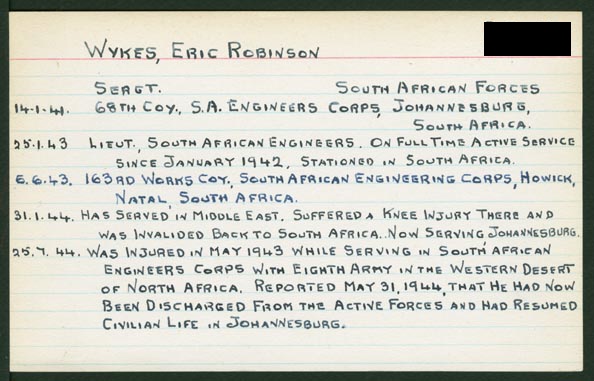 WYKES, ERIC ROBINSON
SERGT. SOUTH AFRICAN FORCES
14-1-41. 68TH COY., S.A. ENGINEERS CORPS, JOHANNESBURG,
SOUTH AFRICA.
25.1.43 LIEUT., SOUTH AFRICAN ENGINEERS. ON FULL TIME ACTIVE SERVICE
SINCE JANUARY 1942, STATIONED IN SOUTH AFRICA.
6.6.43. 163RD WORKS COY., SOUTH AFRICAN ENGINEERING CORPS, HOWICK,
NATAL, SOUTH AFRICA.
31.1.44. HAS SERVED IN MIDDLE EAST. SUFFERED A KNEE INJURY THERE AND
WAS INVALIDED BACK TO SOUTH AFRICA. NOW SERVING JOHANNESBURG.
25.7.44. WAS INJURED IN MAY 1943 WHILE SERVING IN SOUTH AFRICAN
ENGINEERS CORPS WITH EIGHTH ARMY IN THE WESTERN DESERT
OF NORTH AFRICA. REPORTED MAY 31, 1944, THAT HE HAD NOW
BEEN DISCHARGED FROM THE ACTIVE FORCES AND HAD RESUMED
CIVILIAN LIFE IN JOHANNESBURG.